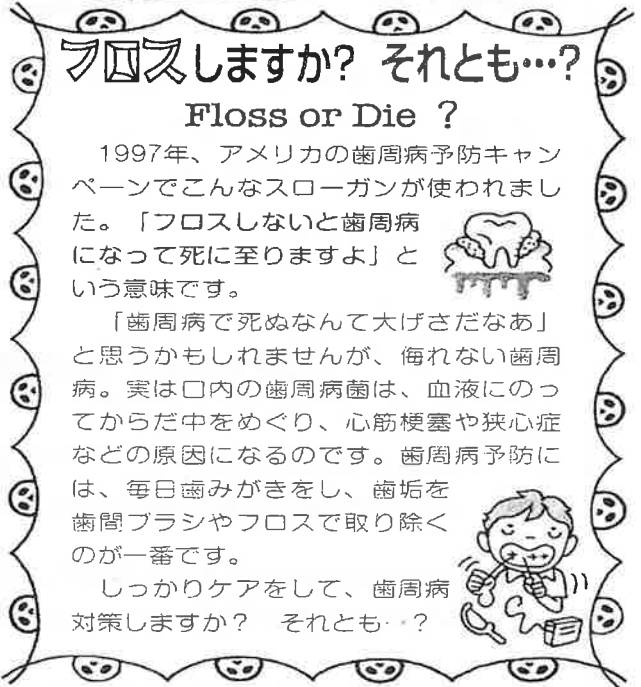 フロスしますか? それとも…?
Floss or Die ?
1997年、アメリカの歯周病予防キャン
ペーンでこんなスローガンが使われまし
た。「フロスしないと歯周病
になって死に至りますよ」と
いう意味です。
「歯周病で死ぬなんて大げさだなあ」
と思うかもしれませんが、侮れない歯周
病。実は口内の歯周病菌は、血液にのっ
てからだ中をめぐり、心筋梗塞や狭心症
などの原因になるのです。歯周病予防に
は、毎日歯みがきをし、歯垢を
歯間ブラシやフロスで取り除く
のが一番です。
しっかりケアをして、歯周病
対策しますか? それとも…?